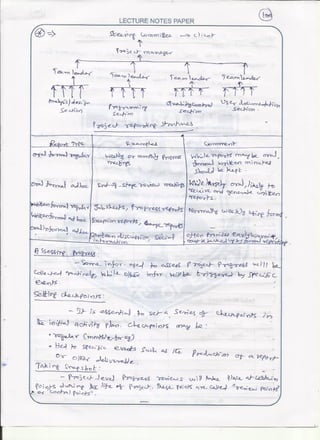 LECTURE NOTES PAPER
Steering Committee → client
Project manager
Team leader Team leader Team leader Team leader
Analysis/design Programming Quality control User documentation
Section Section section section
Project reporting structures
Report Type Examples Comment
Oral formal regular Weekly or monthly progress While reports may be oral,
meetings formal written minutes
should be kept
Oral formal adhoc End-of-stage review meetings While largely oral, likely to
receive and generate written
reports.
Written formal regular Job sheets, Progress reports Normally weekly using forms
Written formal adhoc Exception reports, change reports
Oral informal adhoc Canteen discussion, social often provides early warning,
interaction may be backed up by formal reporting
Assessing progress
- Some infor used to assess project progress will be
collected routinely, while other infor will be triggered by specific
events
Setting checkpoints:
- It is essential to set a series of checkpoints in
the initial activity plan. Checkpoints may be:
• regular (monthly, for eg)
• tied to specific events such as the production of a report
or other deliverable.
Taking Snapshot:
- Project level progress reviews will take place at certain
points during the life of Project. These points are called "review points"
or "control points".